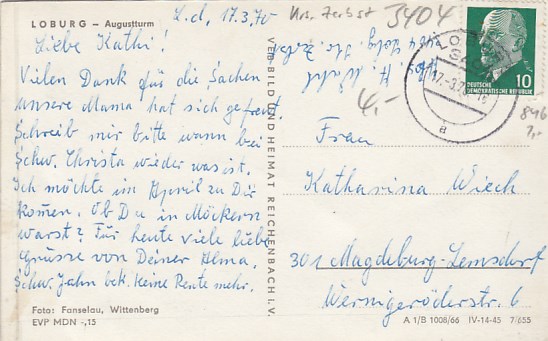 LOBURG – Augustturm
L.d, 17.3.70
Liebe Kathi!
Vielen Dank für die Sachen
unsere Mama hat sich gefreut.
Schreib mir bitte wann bei
Schw. Christa wieder was ist.
Ich möchte im April zu Dir
komen. Ob Du in Möckern
warst? Für heute viele liebe
Grüsse von Deiner Alma.
Schw. Jahn bek. keine Rente mehr.
Foto: Fanselau, Wittenberg
EVP MDN -,15
VEB BILD UND HEIMAT REICHENBACH I. V.
Krs. Zerbst
3404
4,-
LOBURG
17.-3.70
a
10
DEUTSCHE
DEMOKRATISCHE REPUBLIK
846
7,-
Frau
Katharina Wiech
301 Magdeburg-Lemsdorf
Wernigeröderstr. 6
A 1/B 1008/66 IV-14-45 7/655